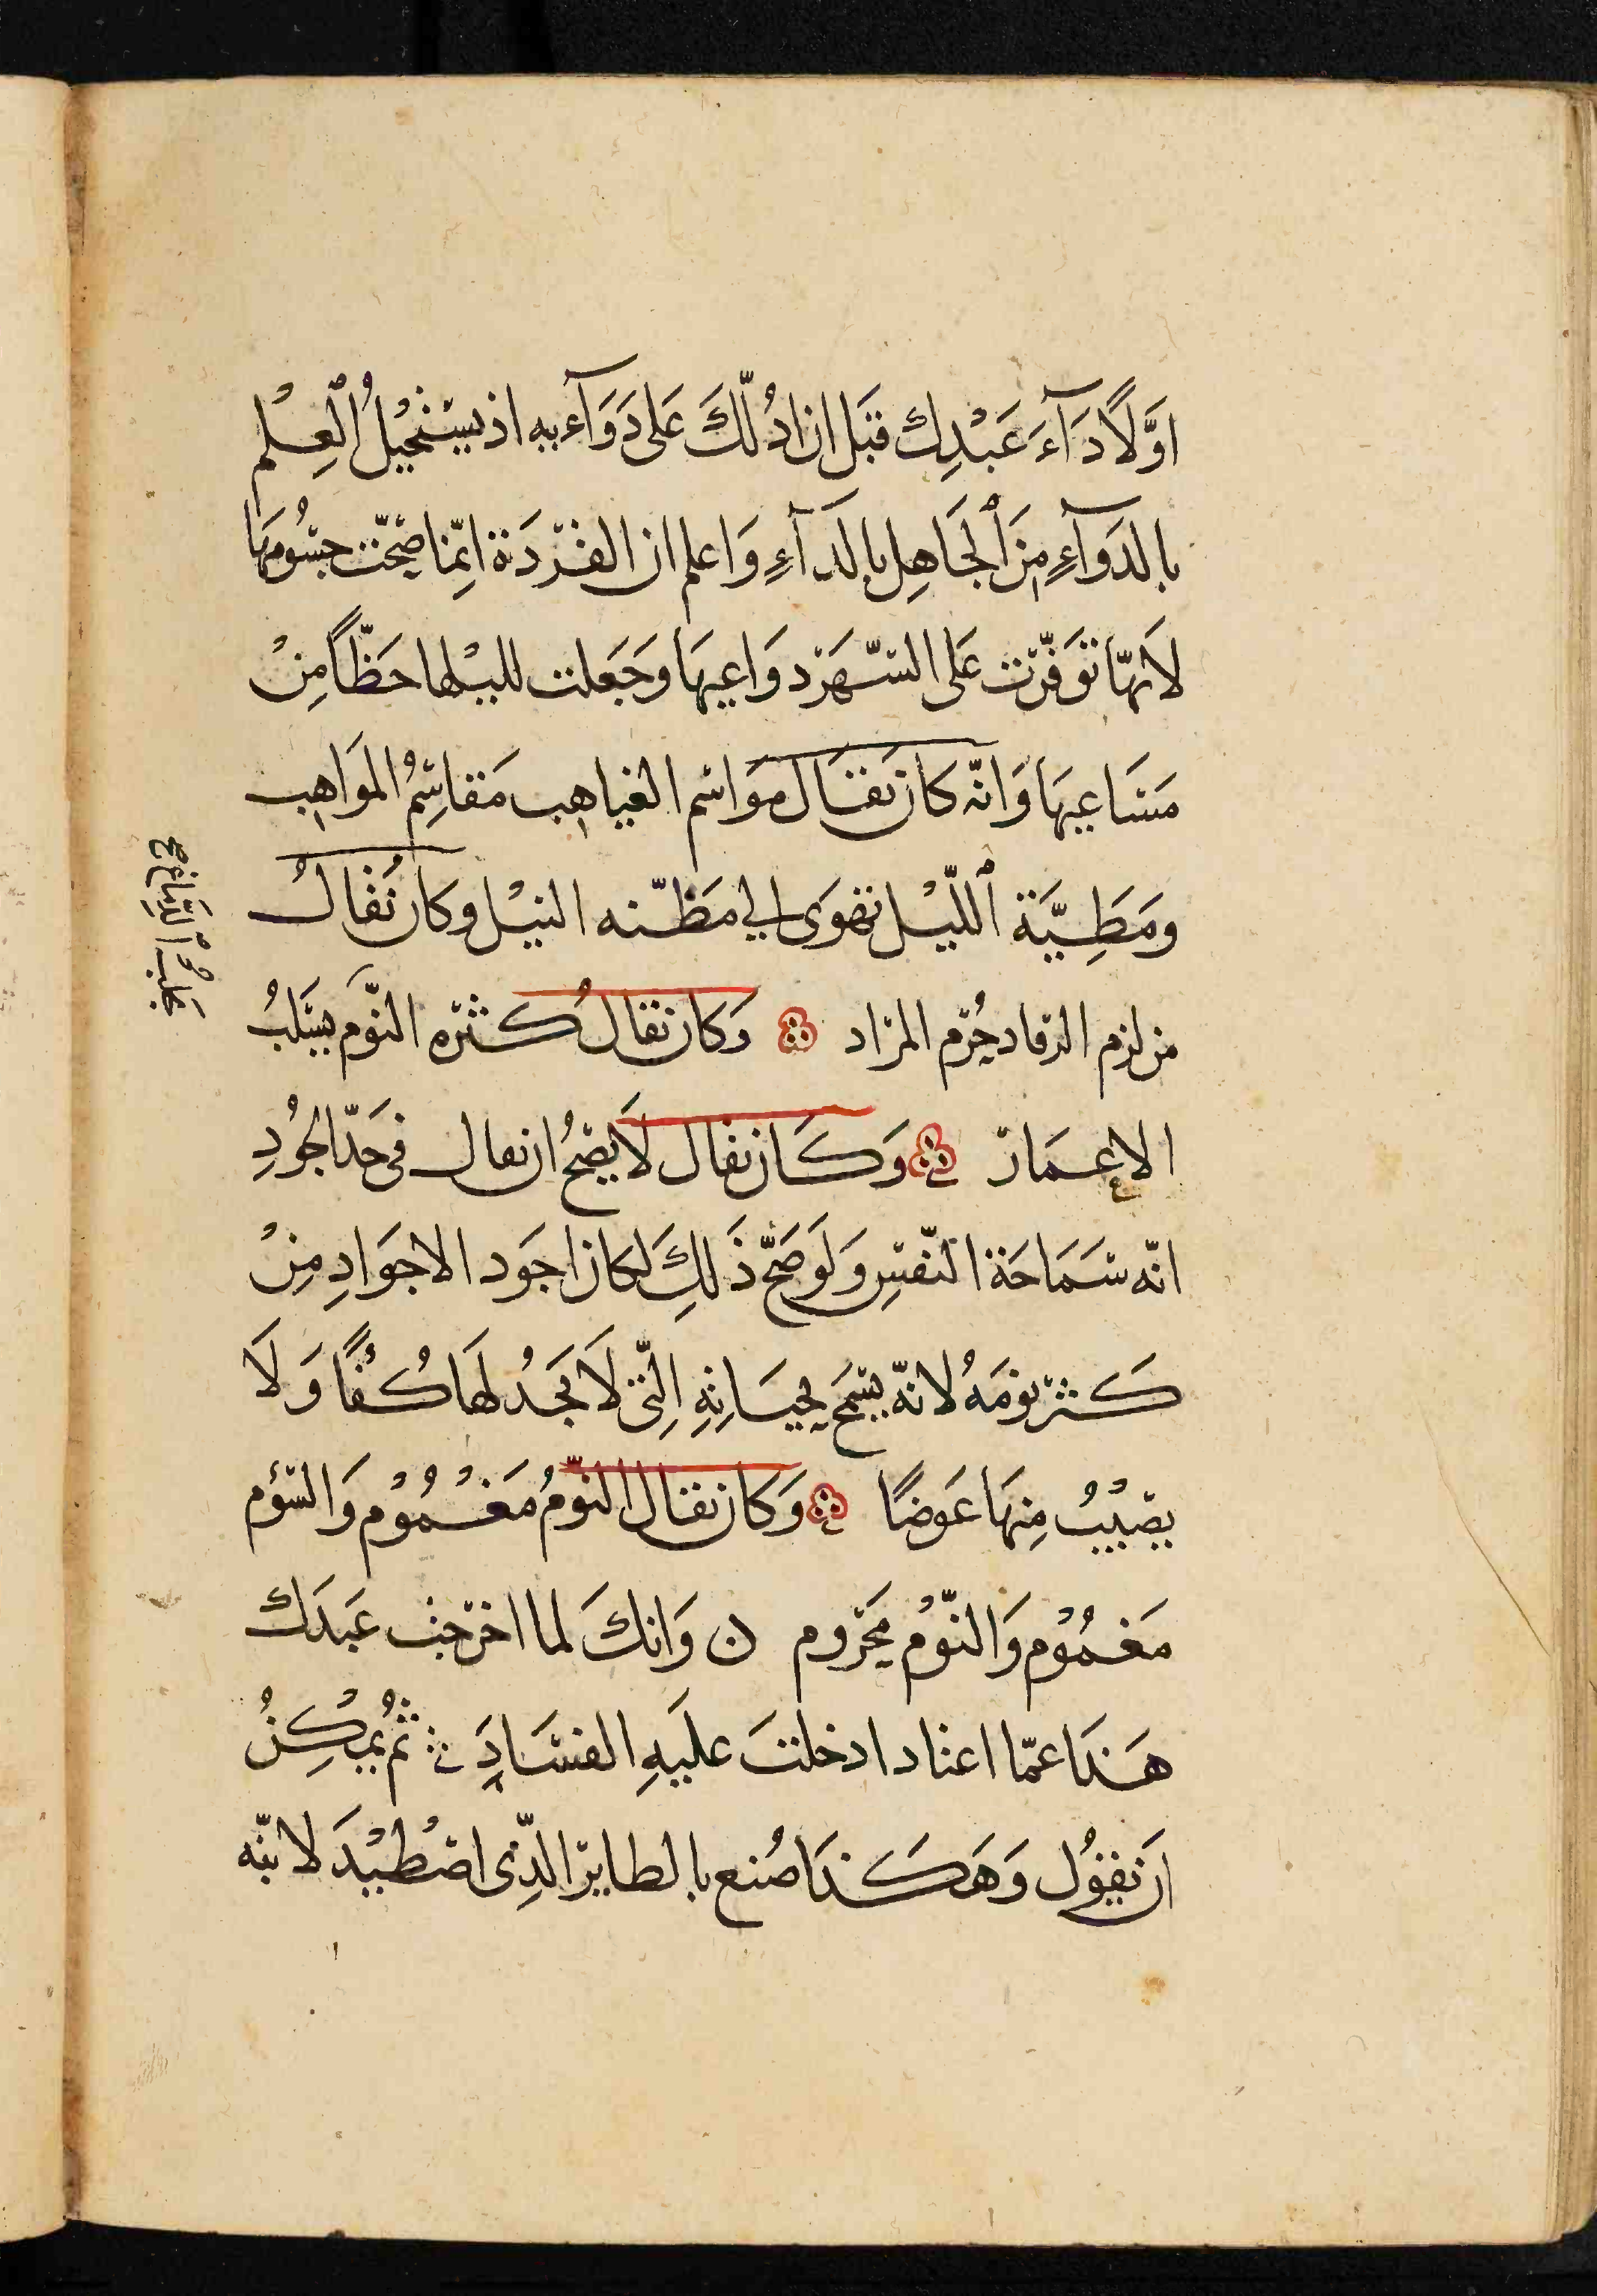 اوَّلًا دَآءَ عَبْدِكَ قبَل ان ادُلّكَ عَلى دَوَآءيه اذ يسْتحيْلُ العِلْم
بالدَوآءِ مِنَ الجَاهِل بالدَآءِ وَاعلم ان القردَة انّما صحّت جسُومهَا
لانهّا توَفّرت عَلى السّهَر دوَاعيهَا وجَعلت لليْلها حَظّاً مِنْ
مَسَاعيهَا وَانّه كان يقَال موَاسم الغياهِب مَقاسِمُ الموَاهِب
ومَطِيَّة اللّيْل تهوَى الي مَظنّه النيْل وكان يُقال
من لزم الرقاد حُرم المراد وَكان يقال كثره النّوم يسَلبُ
الاعمَار وَكَان يقال لَا يصَحُ ان يقال فى حَدّ الجُودِ
انّه سَمَاحَة النّفسِ وَلَو صَحَّ ذَلكَ لكان اجوَد الاجوَادِ مِنْ
كَثر نومَهُ لانّه يسَمح بحيَاتِهِ الّتى لَا يجَدُ لهَا كُفًا وَلَا
يصَيْبُ مِنهَا عَوضًا وَكان يقال النّومُ مَغْمُوْم وَالسّؤم
مَغمُوْم وَالنّوْم مَحروم ن وَانكَ لما اخرَجت عَبدَك
هَذا عمّا اعتاد ادخلتَ عليَهِ الفسَادَ ثمُ يمْكِنُ
ان نقُول وَهَكَذا صُنع بالطاير الّذِى اصْطيْدَ لانّه